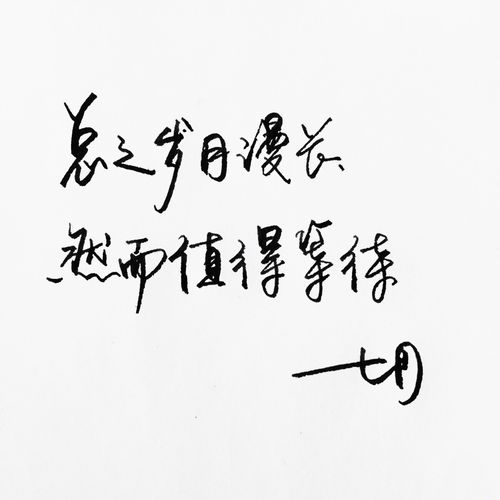 总之岁月漫长
然而值得等待
七月